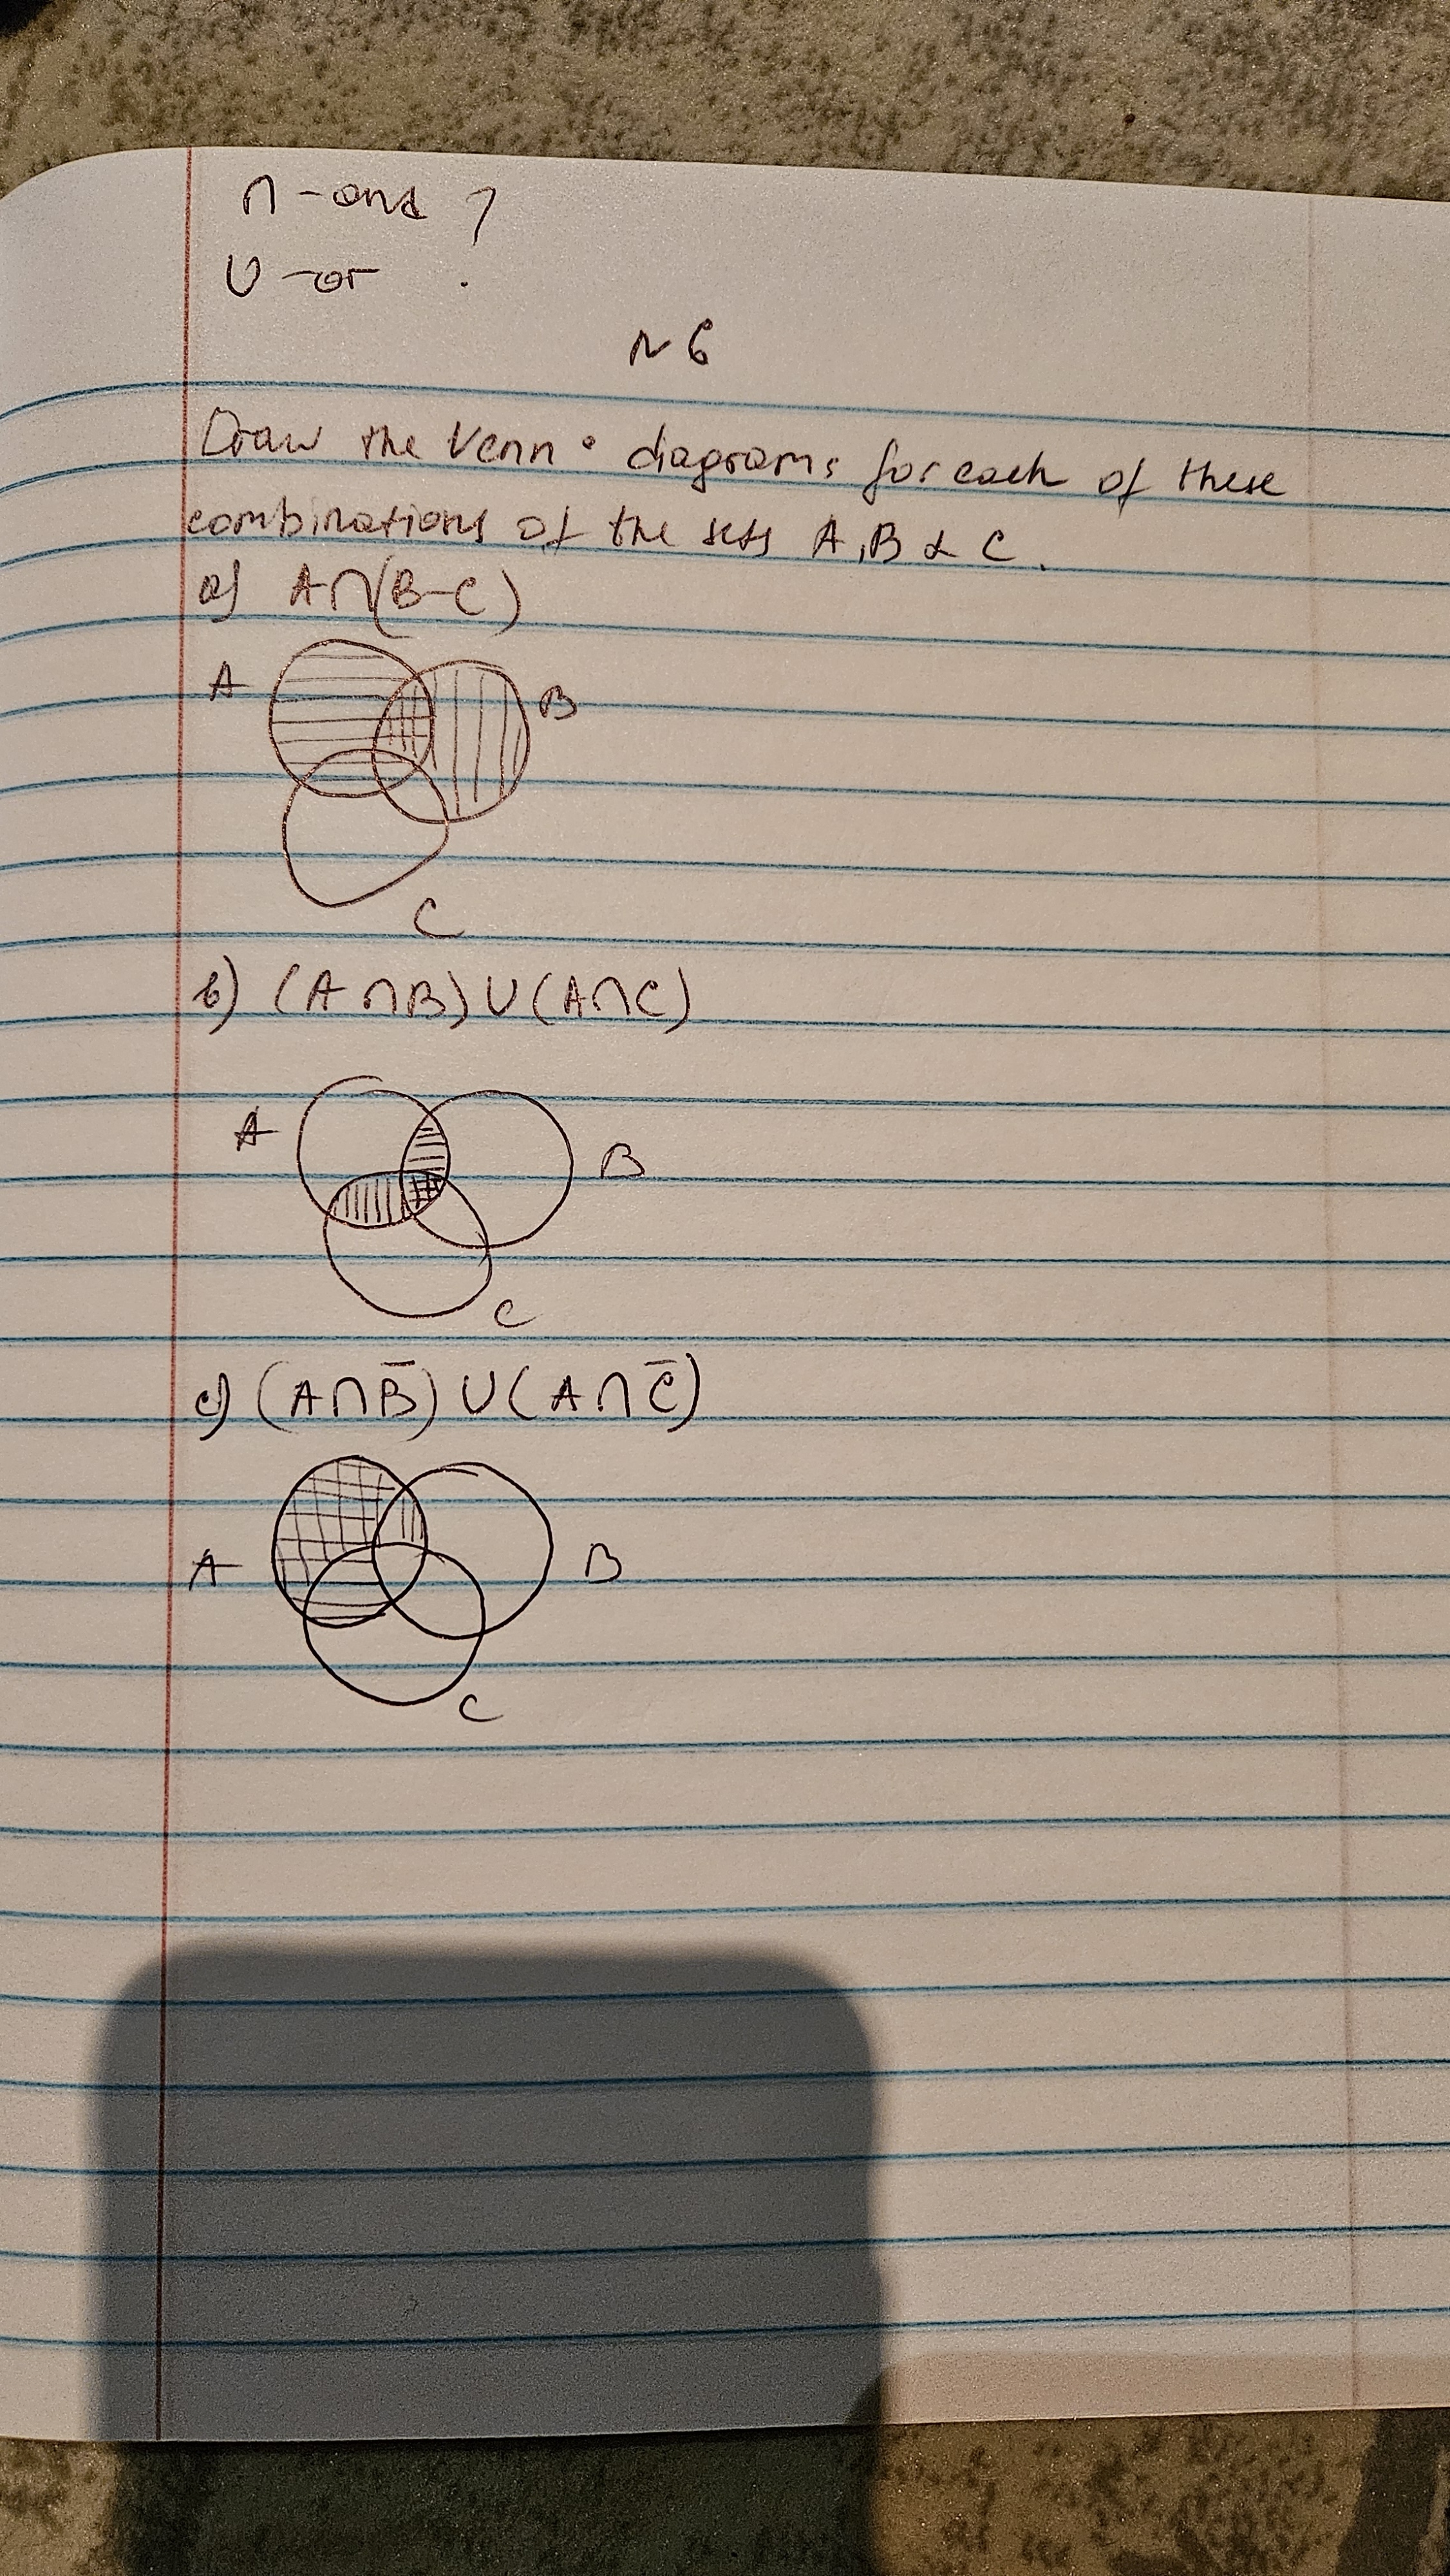 ∩ - and ?
∪ - or .
N 6
Draw the Venn diagrams for each of these
combinations of the sets A, B & C.
a) A∩(B-C)
A
B
C
b) (A∩B)∪(A∩C)
A
B
C
c) (A∩B̅)∪(A∩C̅)
A
B
C